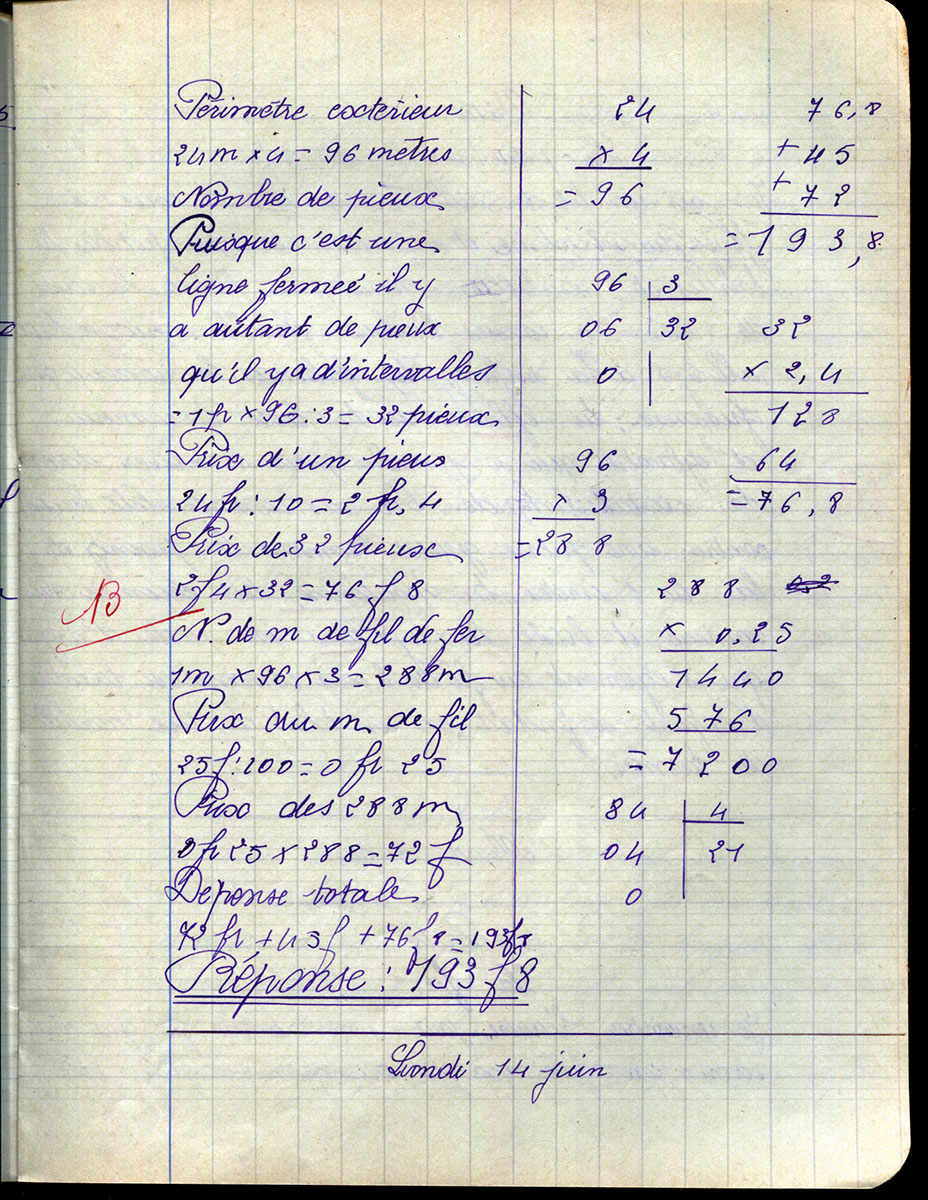 Périmètre extérieur
24m × 4 = 96 mètres
Nombre de pieux
Puisque c'est une
ligne fermée il y
a autant de pieux
qu'il y a d'intervalles
= 1 p × 96 : 3 = 32 pieux
Prix d'un pieux
24 fr : 10 = 2 fr, 4
Prix de 32 pieux
2f 4 × 32 = 76 f 8
N. de m de fil de fer
1m × 96 × 3 = 288m
Prix du m de fil
25f : 100 = 0 fr 25
Prix des 288 m
0 fr 25 × 288 = 72 f
Dépense totale
72 fr + 45 f + 76 f 8 = 193 f 8
Réponse : 193 f 8
24
× 4
= 96
96 3
06 32
0
96
× 3
= 288
76,8
+ 45
+ 72
= 193,8
32
× 2,4
128
64
= 76,8
288
× 0,25
1440
576
= 7200
84 4
04 21
0
B
Lundi 14 juin